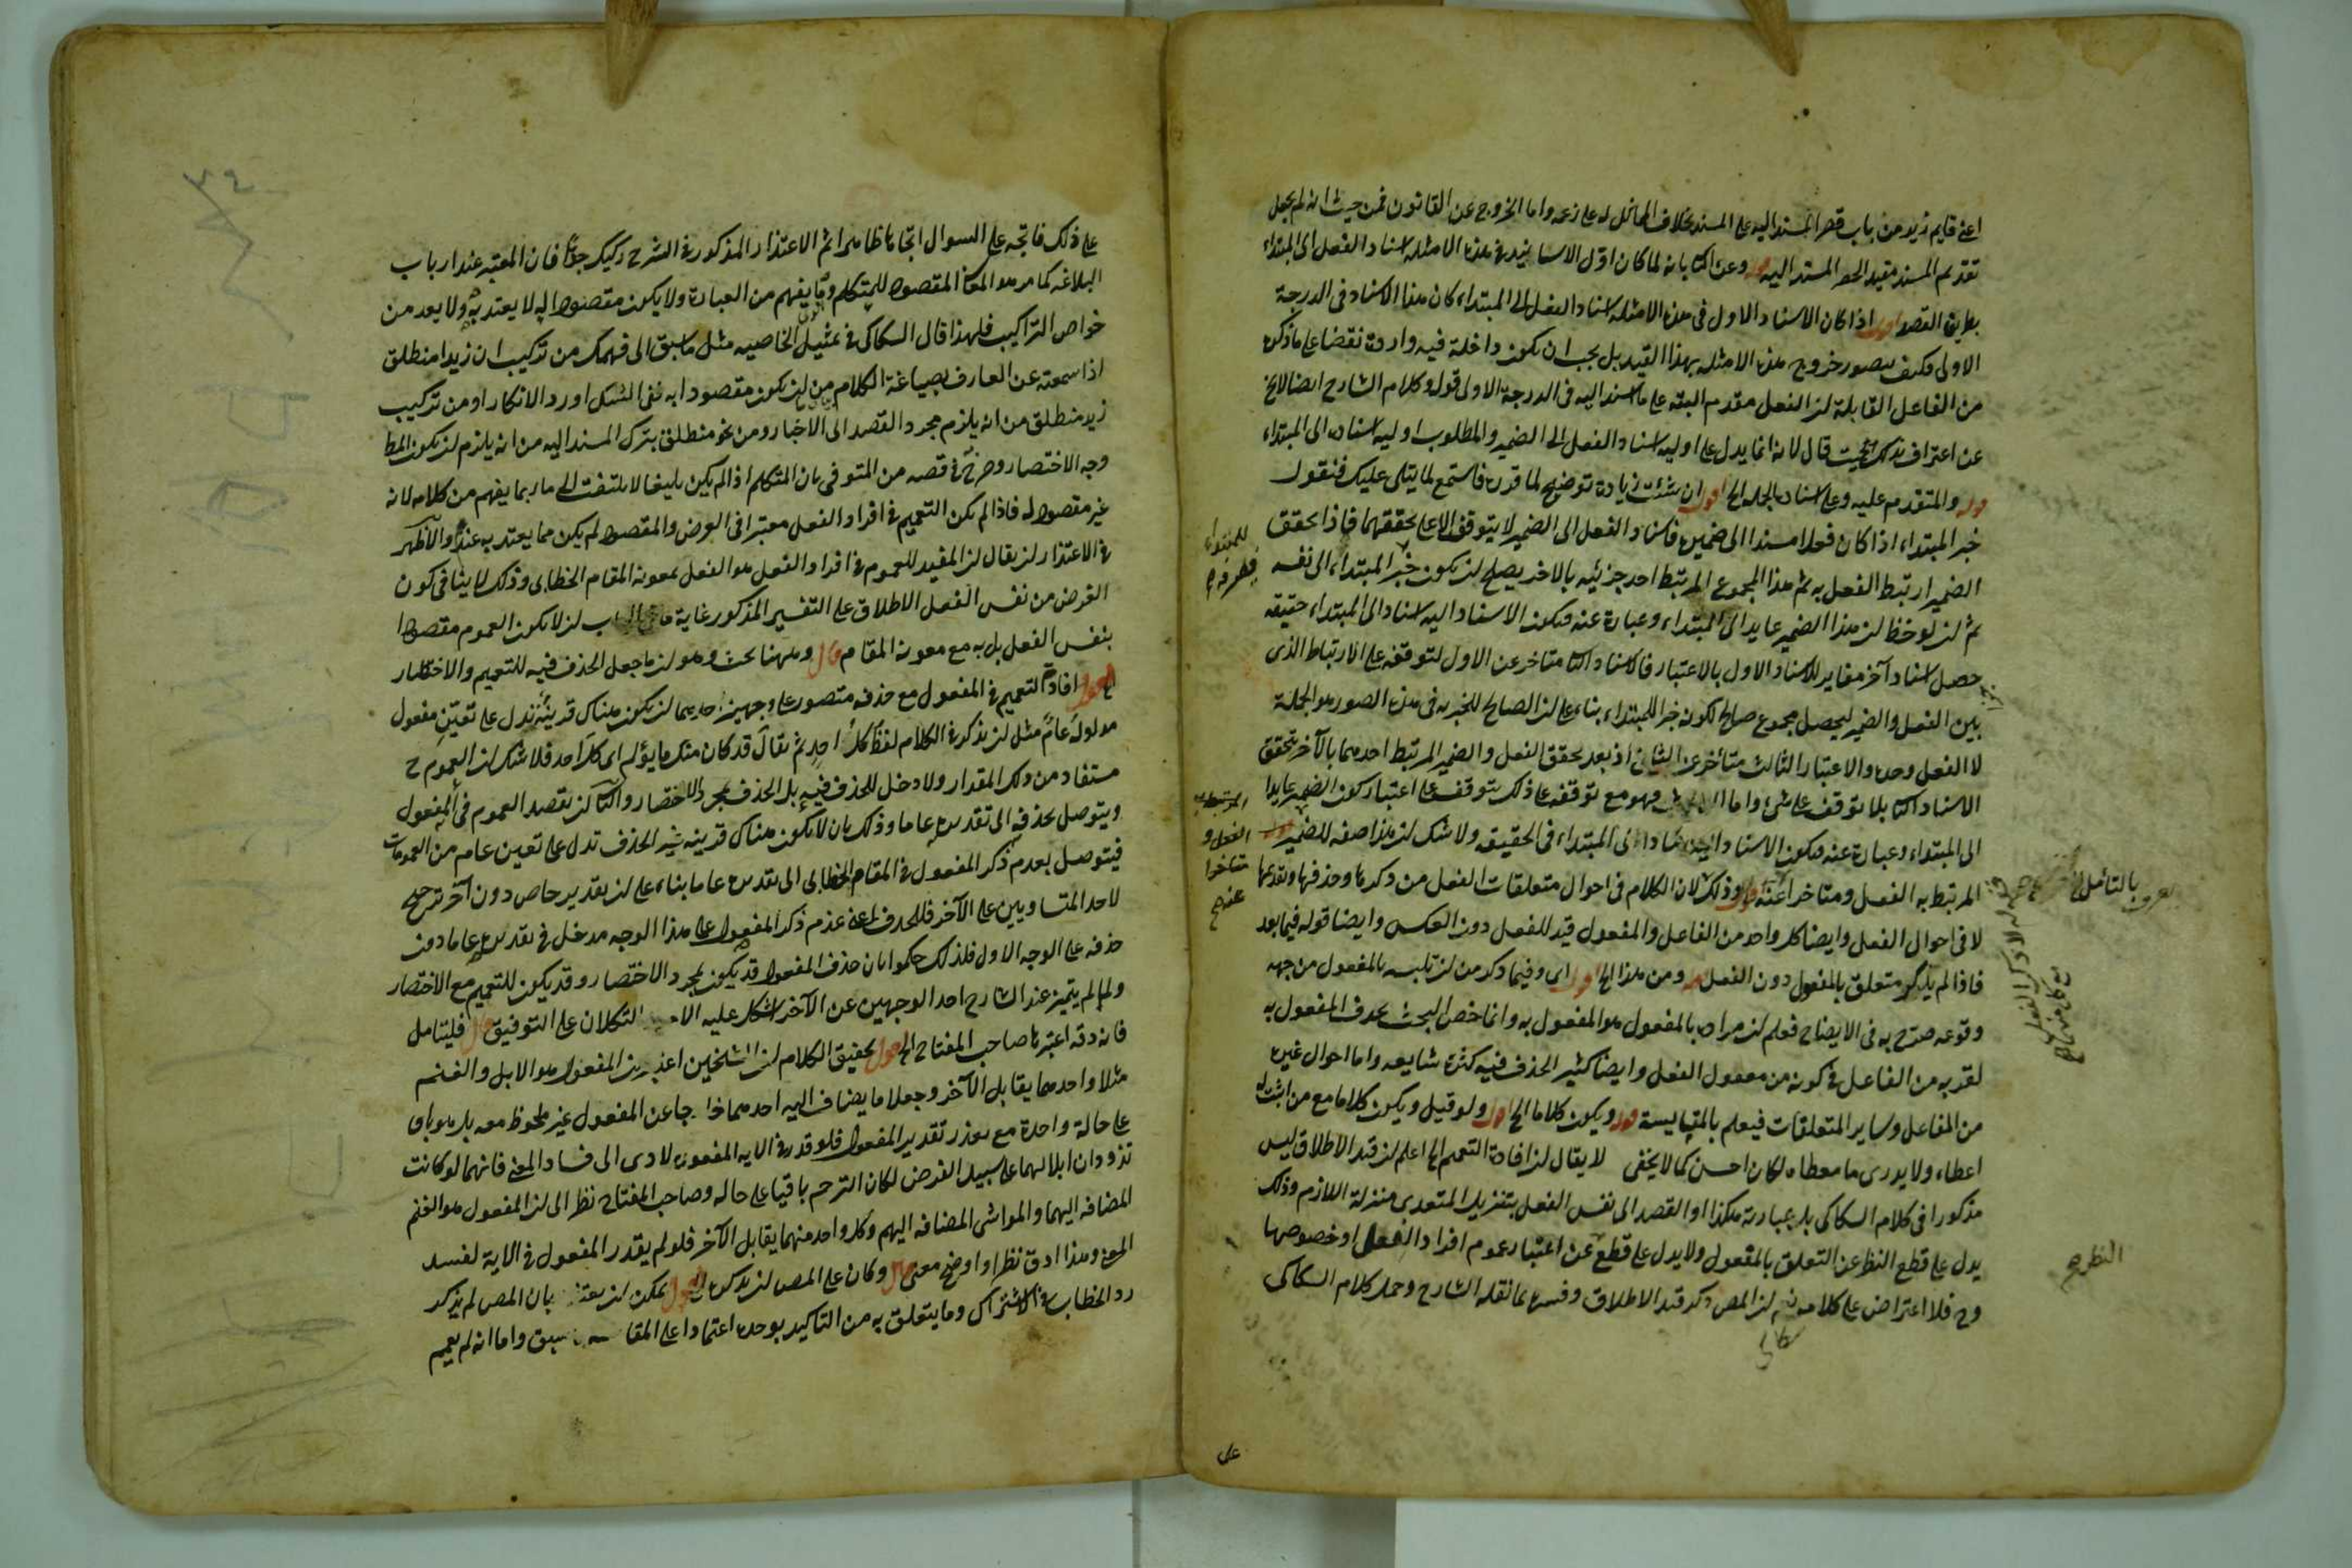 اعنى قايم زيد من باب قصر المسند اليه على المسند بخلاف الماثل له على زعمه واما الخروج عن القانون فمن حيث انه لم يجعل
تقديم المسند مفيد الحصر المسند اليه قوله وعن الثانى بانه لما كان اول الاسانيد فى هذه الامثله اسناد الفعل الى المبتداء
بطريق القصد اقول اذا كان الاسناد الاول فى هذه الامثله اسناد الفعل الى المبتداء كان هذا الاسناد فى الدرجة
الاولى فكيف يتصور خروج هذه الامثله بهذا القيد بل يجب ان تكون داخلة فيه واردة نقضا على ماذكره
من الفاعل القابلة لان الفعل مقدم البته على ما اسند اليه فى الدرجة الاولى قوله وكلام الشارح ايضا لا يخ
عن اعتراف بذلك بحيث قال لانه انما يدل على اوليه اسناد الفعل الى الضمير والمطلوب اوليه اسناده الى المبتداء
قوله والمتقدم عليه وعلى اسناده الجمله الخ اقول ان شئت زيادة توضيح لما قدره فاستمع لما يتلى عليك فنقول
خبر المبتداء اذا كان فعلا مسندا الى ضميره فاسناد الفعل الى الضمير لا يتوقف الا على تحققهما فاذا تحقق
الضمير ارتبط الفعل به ثم هذا المجموع المرتبط احد جزئيه بالاخر يصلح لان يكون خبر المبتداء الى نفسه
ثم ان لوحظ ان هذا الضمير عايد الى المبتداء وعبارة عنه فيكون الاسناد اليه اسنادا الى المبتداء حقيقه
حصل اسناد آخر مغاير للاسناد الاول بالاعتبار فالاسناد الثانى متاخر عن الاول لتوقفه على الارتباط الذى
بين الفعل والضمير ليحصل مجموع صالح لكونه خبرا للمبتداء بناء على ان الصالح للخبريه فى هذه الصور هو الجملة
لا الفعل وحده والاعتبار الثالث متأخر عن الثانى اذ بعد تحقق الفعل والضمير المرتبط احدهما بالآخر يتحقق
الاسناد الثانى بلا توقف على شئ واما الثالث فهو مع توقفه على ذلك يتوقف على اعتبار كون الضمير عايدا
الى المبتداء وعبارة عنه فيكون الاسناد اليه اسنادا الى المبتداء فى الحقيقه ولا شك ان هذا صفه للضمير
المرتبط به الفعل ومتاخرا عنه قوله وذلك لان الكلام فى احوال متعلقات الفعل من ذكرها وحذفها وتقديمها
لا فى احوال الفعل وايضا كل واحد من الفاعل والمفعول قيد للفعل دون العكس وايضا قوله فيما بعد
فاذا لم يذكر متعلق بالمفعول دون الفعل قوله ومن هذا الخ اقول اى وفيما ذكر من ان تلبسه بالمفعول من جهه
وقوعه صرح به فى الايضاح فعلم ان مراده بالمفعول هو المفعول به وانما خص البحث بحذف المفعول به
لقربه من الفاعل فى كونه من معمول الفعل وايضا كثير الحذف فيه كثرة شايعه واما احوال غيره
من المفاعل وساير المتعلقات فيعلم بالمقايسة قوله ويكون كلاما الخ اقول ولو قيل ويكون كلاما مع من اثبت له
اعطاء ولا يدرى ما معطاه لكان احسن كما لا يخفى لا يقال ان افادة التعميم الخ اعلم ان قيد الاطلاق ليس
مذكورا فى كلام السكاكى بل عبارته هكذا او القصد الى نفس الفعل بتنزيل المتعدى منزلة اللازم وذلك
يدل على قطع النظر عن التعلق بالمفعول ولا يدل على قطع عن اعتبار عموم افراد الفعل او خصوصها
وح فلا اعتراض على كلامه ثم ان المص ذكر قيد الاطلاق وفسره بما نقله الشارح وحمل كلام السكاكى
النظر صح
على
على ذلك فاتجه على السوال اتجاها ظاهرا ثم الاعتذار المذكور فى الشرح ركيك جدا فان المعتبر عند ارباب
البلاغه كما مر هو المعانى المقصوده للمتكلم وما يفهم من العبارة ولا يكون مقصودا له لا يعتد به ولا يعد من
خواص التراكيب فلهذا قال السكاكى فى تمثيل الخاصيه مثل ما سبق الى فهمك من تركيب ان زيدا منطلق
اذا سمعته عن العارف بصياغة الكلام من ان يكون مقصودا به نفى الشك او رد الانكار او من تركيب
زيد منطلق من انه يلزم مجرد القصد الى الاخبار ومن نحو منطلق بترك المسند اليه من انه يلزم ان يكون المط
وجه الاختصار وصرح فى قصه من المتوفى بان المتكلم اذا لم يكن بليغا لا يلتفت الى ما ربما يفهم من كلامه لانه
غير مقصود له فاذا لم يكن التعميم فى افراد الفعل معتبرا فى الغرض والمقصود لم يكن مما يعتد به عندهم والاظهر
فى الاعتذار ان يقال ان المفيد للعموم فى افراد الفعل هو الفعل بمعونة المقام الخطابى وذلك لا ينافى كون
الغرض من نفس الفعل الاطلاق على التفسير المذكور غاية ما فى الباب ان لا يكون العموم مقصودا
بنفس الفعل بل به مع معونة المقام قال وههنا بحث وهو ان ما جعل الحذف فيه للتعميم والاختصار
الخ اقول افادة التعميم فى المفعول مع حذفه متصور على وجهين احدهما ان يكون هناك قرينة تدل على تعين مفعول
مدلوله عام مثل ان يذكر فى الكلام لفظ كل احد ثم يقال قد كان منك ما يؤلم اى كل احد فلا شك ان العموم ح
مستفاد من ذلك المقدار ولا دخل للحذف فيه بل الحذف لمجرد الاختصار والثانى ان يقصد العموم فى المفعول
ويتوصل بحذفه الى تقديره عاما وذلك بان لا يكون هناك قرينه غير الحذف تدل على تعين عام من العمومات
فيتوصل بعدم ذكر المفعول فى المقام الخطابى الى تقديره عاما بناء على ان تقدير خاص دون آخر ترجيح
لاحد المتساويين على الآخر فللحذف اعنى عدم ذكر المفعول على هذا الوجه مدخل فى تقديره عاما دون
حذفه على الوجه الاول فلذلك حكموا بان حذف المفعول قد يكون لمجرد الاختصار وقد يكون للتعميم مع الاختصار
ولما لم يتميز عند الشارح احد الوجهين عن الآخر اشكل عليه الامر التكلان على التوفيق قال فليتامل
فانه دقه اعتبرها صاحب المفتاح الخ اقول تحقيق الكلام ان الشيخين اعتبرا ان المفعول هو الابل والغنم
مثلا واحدهما يقابل الآخر وجعلا ما يضاف اليه احدهما خارجا عن المفعول غير ملحوظ معه بل هو باق
على حالة واحدة مع تعذر تقدير المفعول فلو قدر فى الايه المفعول لادى الى فساد المعنى فانهما لو كانت
تذودان ابلا لهما على سبيل الفرض لكان الترحم باقيا على حاله وصاحب المفتاح نظر الى ان المفعول هو الغنم
المضافه اليهما والمواشى المضافه اليهم وكل واحد منهما يقابل الآخر فلو لم يقدر المفعول فى الاية لفسد
المعنى وهذا ادق نظرا واوضح معنى قال وكان على المص ان يذكره الخ اقول يمكن ان يعتذر بان المص لم يذكر
رد الخطاب فى الاشتراك وما يتعلق به من التاكيد بوحده اعتمادا على المقا سبق واما انه لم يعمم